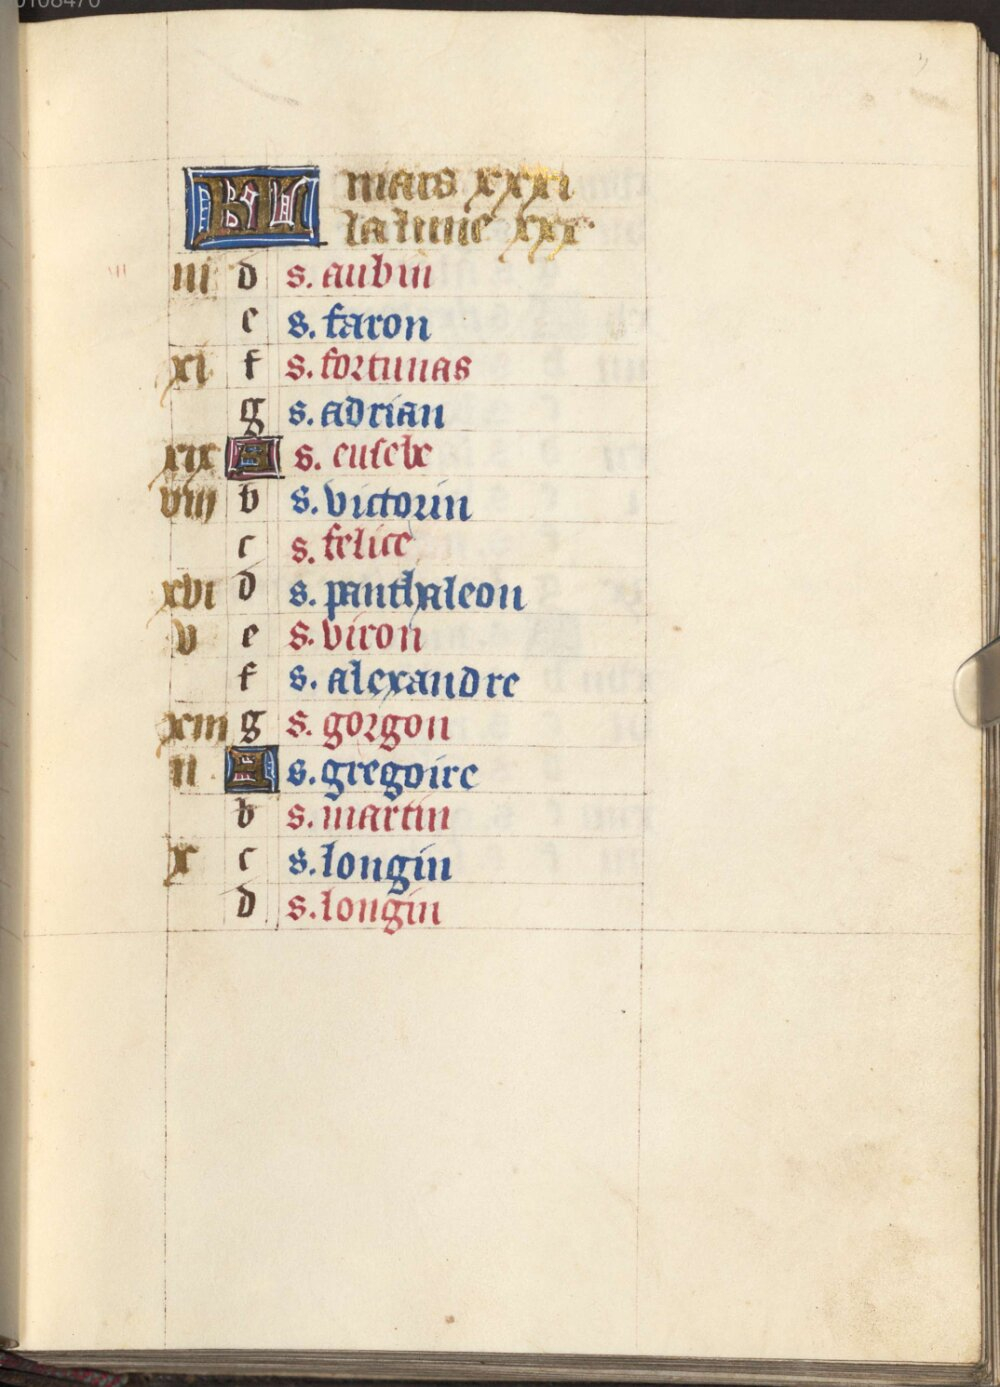 KL mars xxxi
la lune xxx
iii d s. aubin
e s. faron
xi f s. fortunas
g s. adrian
xix A s. eusebe
viii b s. victorin
c s. felice
xvi d s. panthaleon
v e s. viron
f s. alexandre
xiii g s. gorgon
ii A s. gregoire
b s. martin
x c s. longin
d s. longin